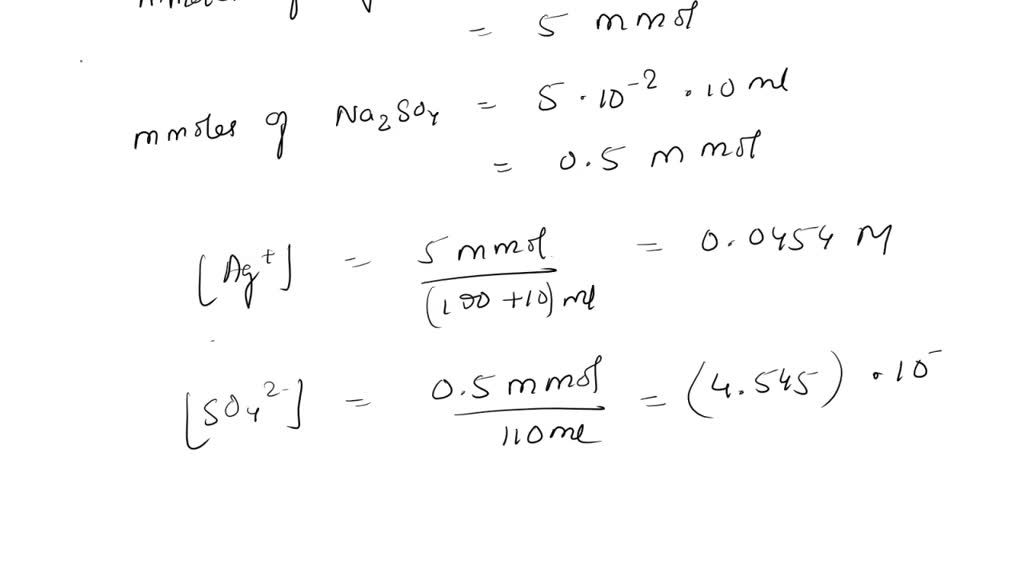 = 5 mmol
mmoles of Na₂SO₄ = 5 · 10⁻² · 10 ml
= 0.5 mmol
[Ag⁺] = 5 mmol / (100 + 10) ml = 0.0454 M
[SO₄²⁻] = 0.5 mmol / 110 ml = (4.545) · 10⁻